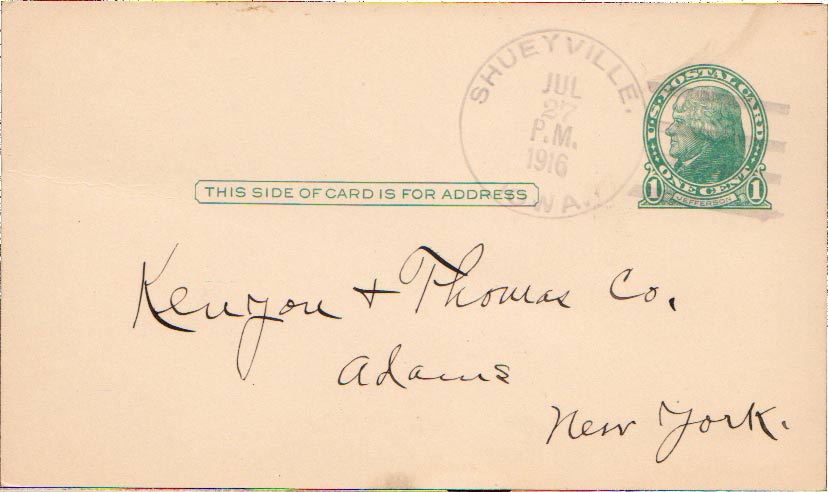 SHUEYVILLE,
JUL
27
P.M.
1916
IOWA.
U.S. POSTAL CARD
ONE CENT
1 1
JEFFERSON
THIS SIDE OF CARD IS FOR ADDRESS
Kenyon + Thomas Co.
Adams
New York.